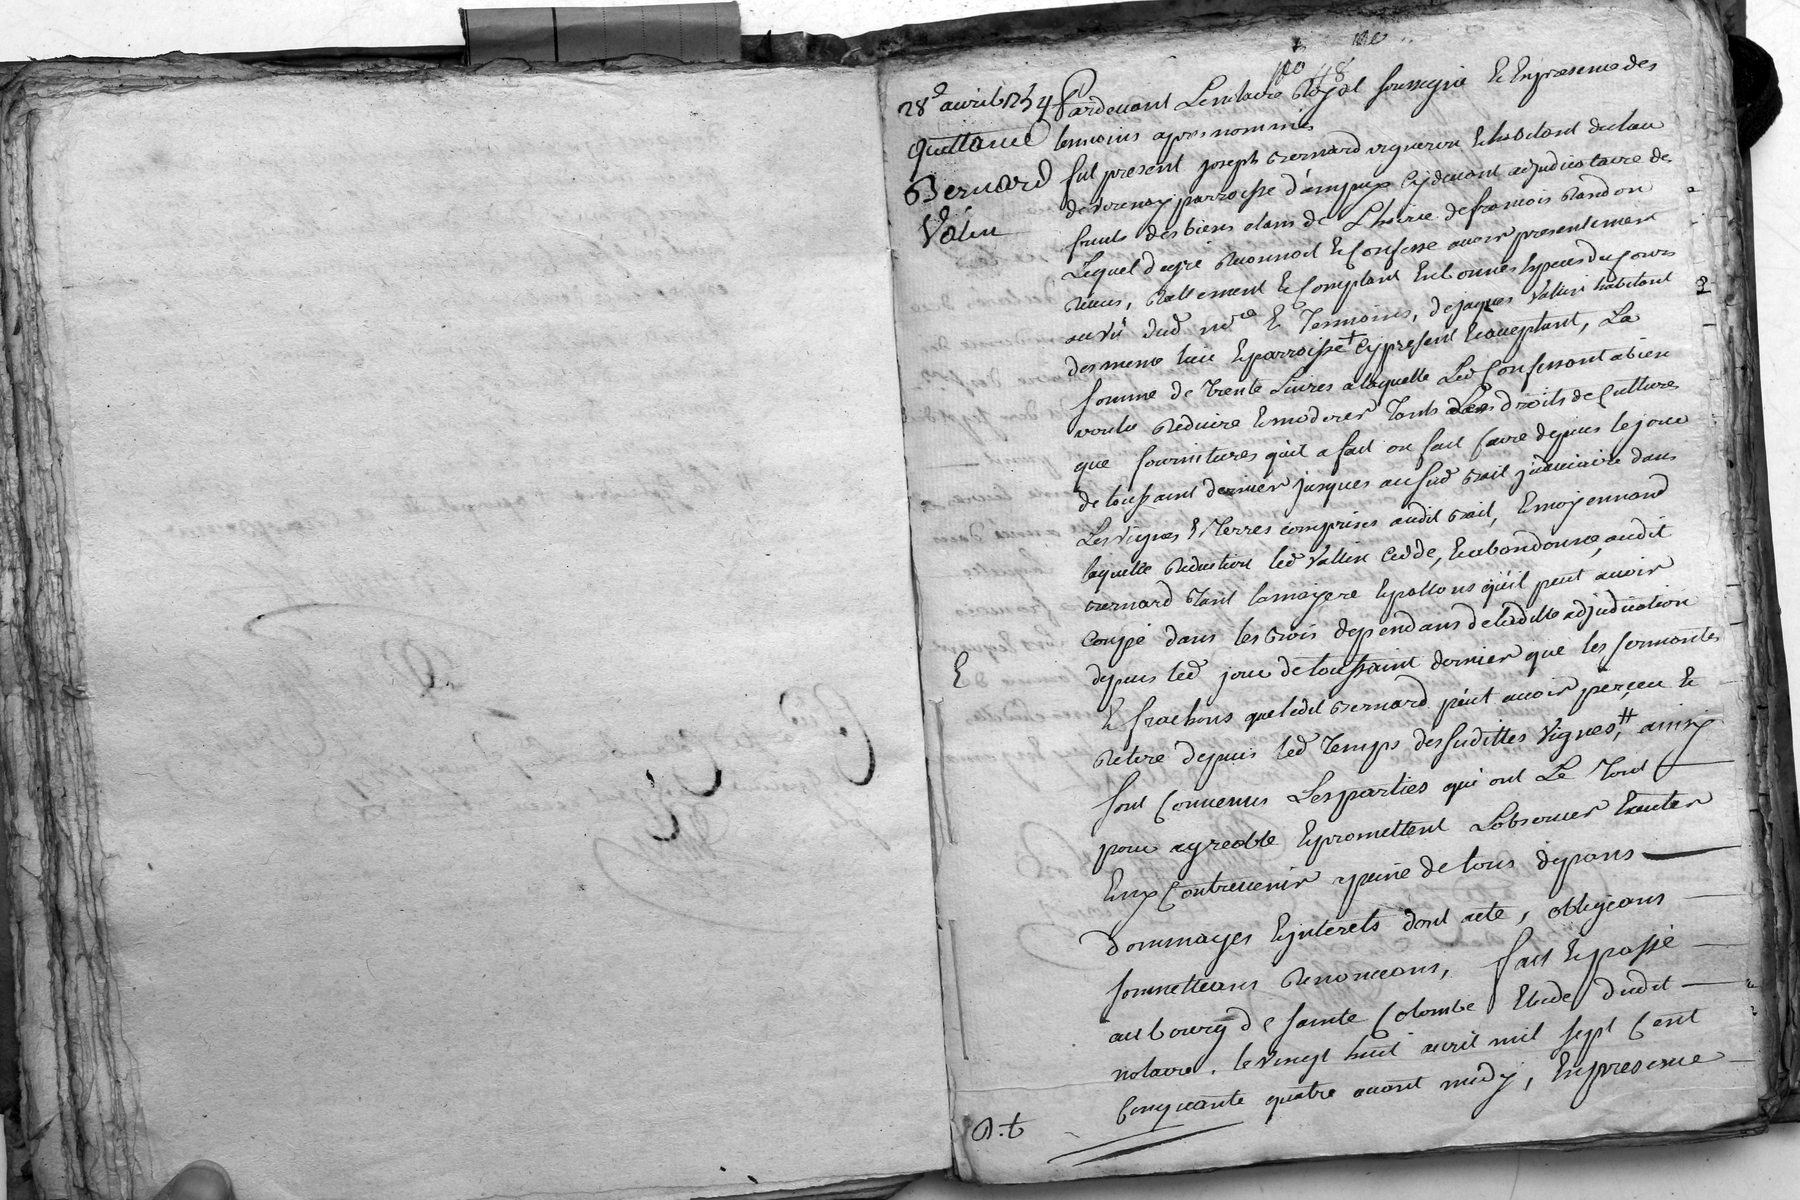 28e avril 1754
Quittance
Bernard
Valin
Pardevant Le notaire Royal soussigné Et En presence des
temoins apres nommés
fut present joseph Bernard vigneron Et habitant du lieu
de verenay parroisse d'ampuis Cy devant adjudicataire des
fruits des biens de L'hoirie de francois Randon
Lequel de gré Reconnoit Et Confesse avoir presentement
Receus, Rellement Et Comptant En bonnes Especes du Cours
au vû dud nre Et Temoins, de jaques Vallin habitant
des meme lieu Et parroisse + Cy present Et acceptant, La
somme de Trente Livres a laquelle Led Confessant a bien
voulu Reduire Et moderer Tants Les droits de Culture
que fournitures qu'il a fait ou fait faire depuis le jour
de toussaint dernier jusques au sud Bail judiciaire dans
Les vignes Et Terres comprises audit Bail, Et moyennand
laquelle Reduction led Vallin Cedde, Et abandonne, audit
Bernard Tant la mayere Et pallons qu'il peut avoir
Coupé dans les Bois dependans de laditte adjudication
depuis led jour de toussaint dernier que les sermentes
Et frachons que ledit Bernard peut avoir perçeu Et
Retiré depuis led Temps des sudittes Vignes, # ainsy
sont Convenus Les parties qui ont Le Tout
pour agreable Et promettent L'observer Et
Contrevenir a peine de tous depans
Dommages Et jnterets dont acte, obligeans
soumetteans Renonceans, fait Et passé
au bourg de sainte Colombe Etude dudit
notaire. le vingt huit avril mil sept Cent
Cinquante quatre avant midy, En presence